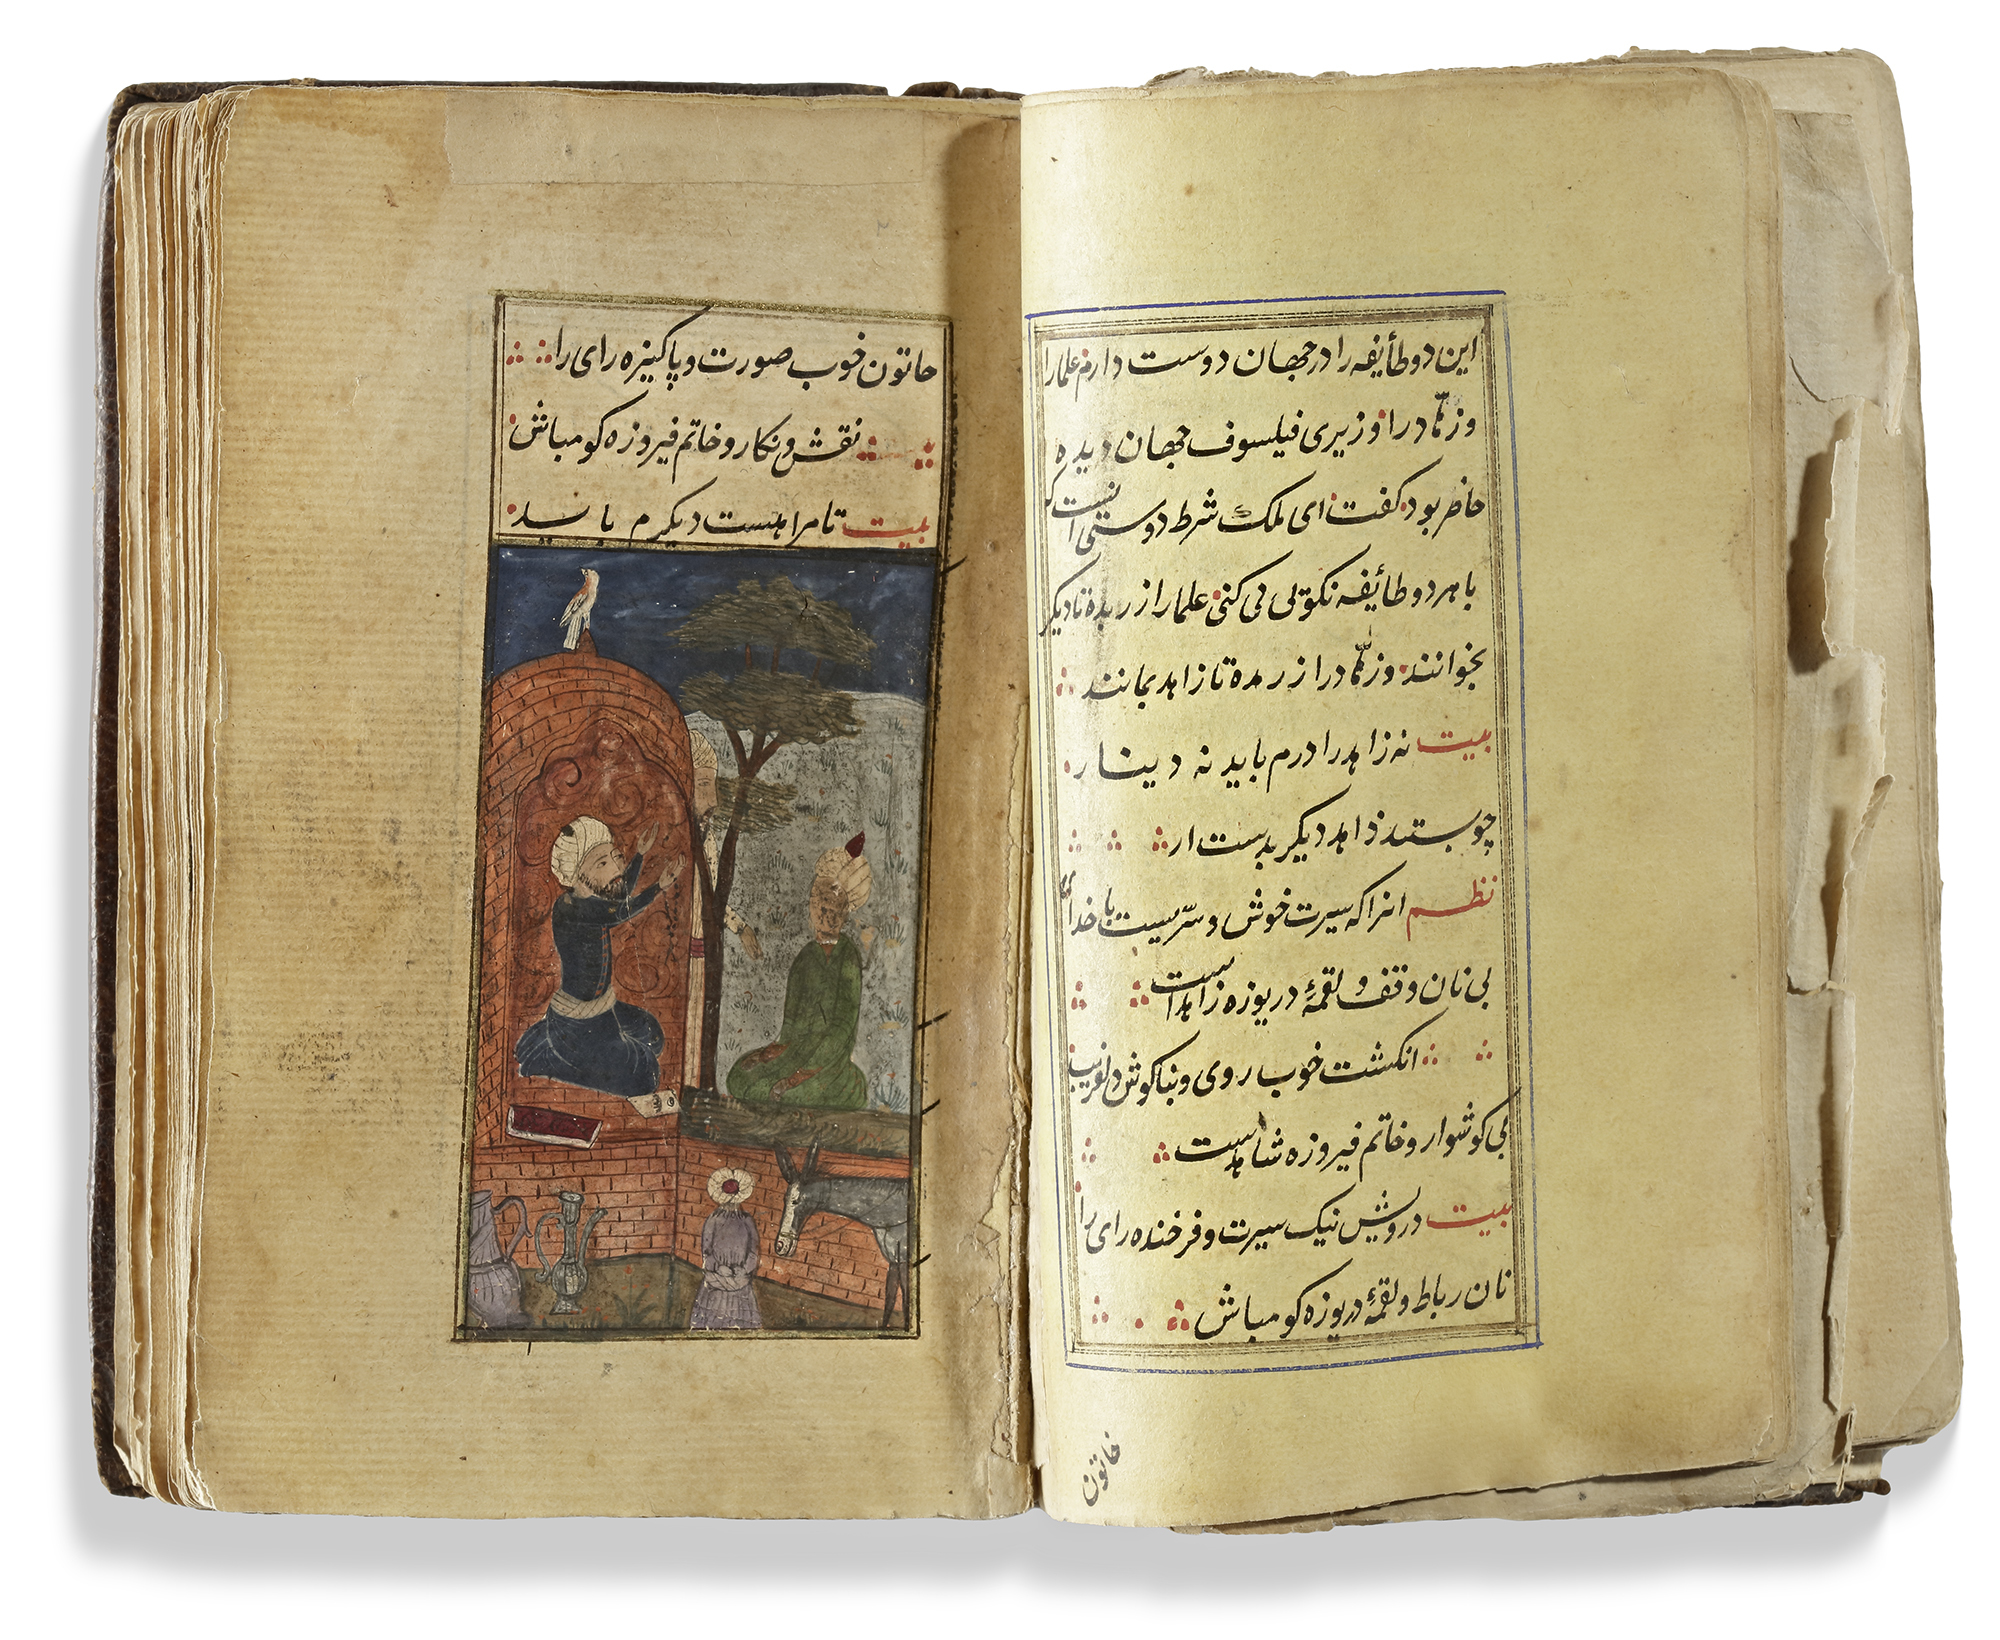 این دو طائیفه را در جهان دوست دارم علما را
و زهّاد را وزیری فیلسوف جهان دیده
حاضر بود گفت ای ملک شرط دوستی انیست که
با هر دو طائیفه نکوئی کنی علما را زر بده تا دیگر
بخوانند و زهّاد را زر مده تا زاهد بمانند
بیت نه زاهد را درم باید نه دینار
چو بستد زاهد دیگر بدست ار
نظم انرا که سیرت خوش و سرّیست با خدای
بی نان وقف و لقمهٔ دریوزه زاهد است
انکشت خوب روی و بناکوش دلفریب
بی کوشوار و خاتم فیروزه شاهد است
بیت درویش نیک سیرت و فرخنده رای را
نان رباط و لقمهٔ دریوزه کو مباش
خاتون
خاتون خوب صورت و پاکیزه رای را
نقش و نکار و خاتم فیروزه کو مباش
بیت تا مرا هست دیکرم باید